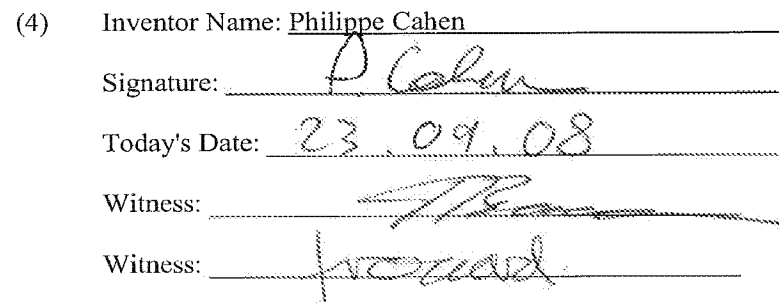 (4) Inventor Name: Philippe Cahen
Signature: P Cahen
Today's Date: 23.09.08
Witness:
Witness: